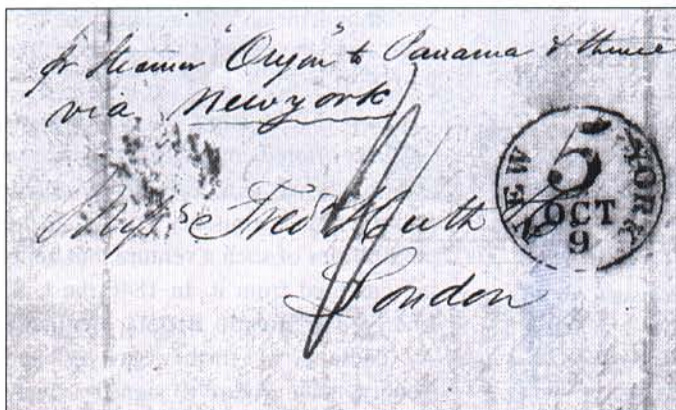 pr Steamer "Oregon" to Panama & thence
via Newyork
Messrs Fredk Huth & Co
London
NEW YORK
5
OCT
9